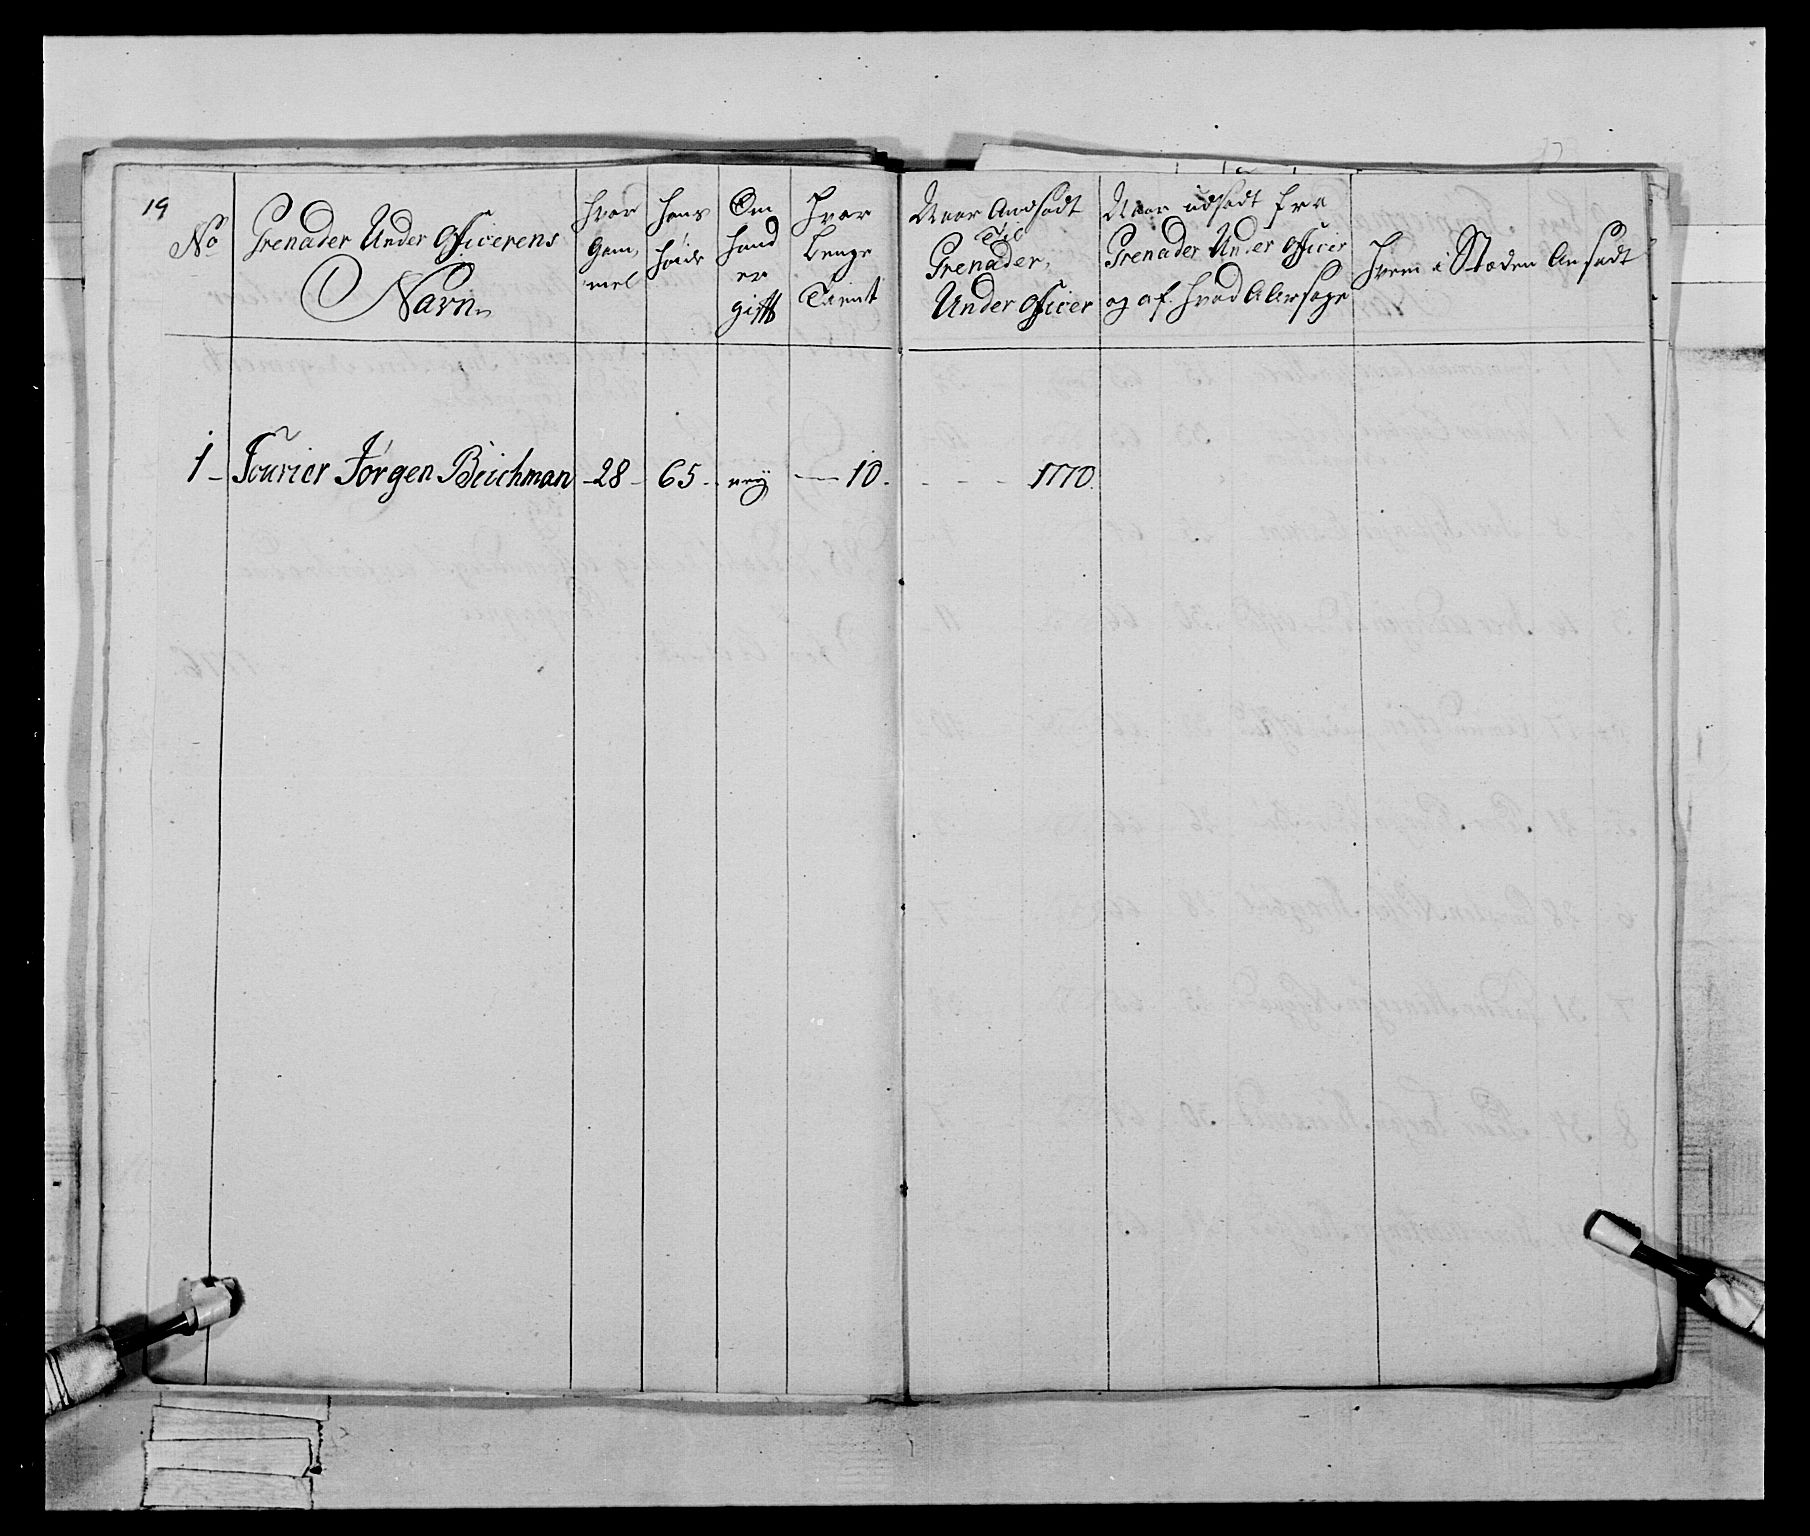 19
No
Grenader Under Officerens
Navn
Hvor
Gam,
mel
Hans
Høide
Om
Hand
er
gifft
Hvor
Lenge
Tient
Naar Andsadt
Til
Grenader,
Under Officer
Naar udsadt fra
Grenader Under Officer
og af Hvad Aarsage
Hvem i Stæden Ansadt
1 Fourier Jørgen Beichman 28 65 neÿ 10. 1770.